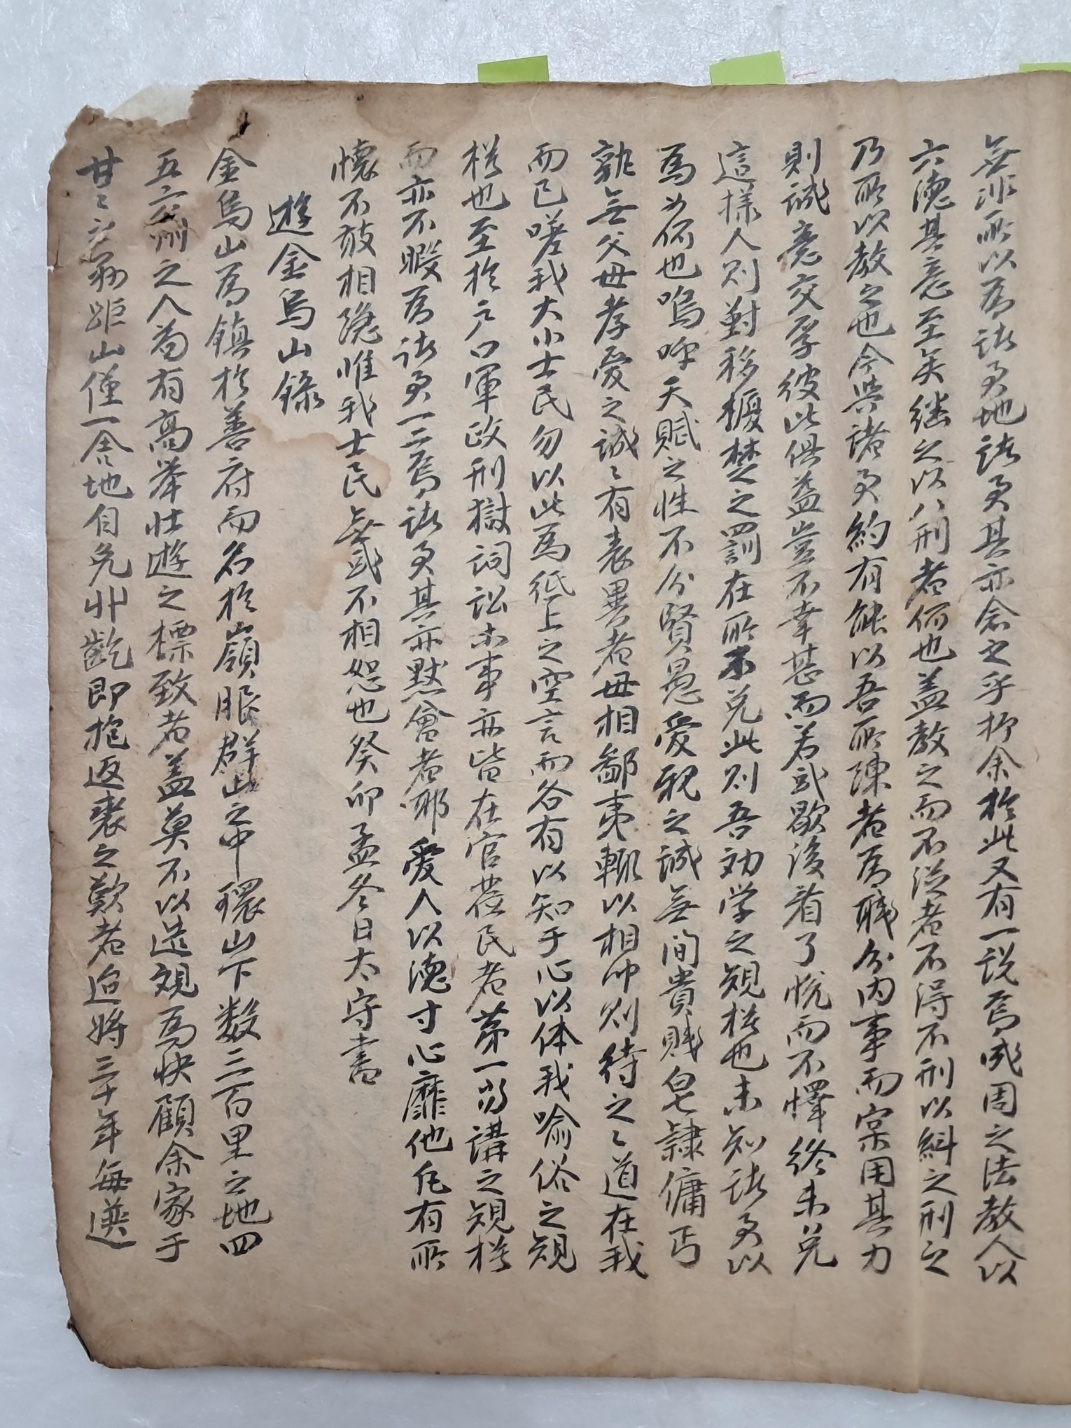 無非所以爲諸君地諸君其亦念之乎抑余於此又有一説焉成周之法教人以
六德其意至矣繼之以八刑者何也盖教之而不從者不得不刑以糾之刑之
乃所以教之也今與諸君約有能以吾所陳者爲職分内事而實用其力
則誠意交孚彼此俱益豈不幸甚而若或歇後看了悅而不懌終未免
這樣人則對移榎楚之罰在所不免此則吾効学之規模也未知諸君以
爲如何也嗚呼天賦之性不分賢愚愛親之誠無間貴賤皂隷傭丐
孰無父母孝愛之誠〻有表異者毋相鄙夷輒以相仲則待之〻道在我
而已嗟我大小士民勿以此爲紙上之空言而各有以知于心以体我喩俗之規
模也至於户口軍政刑獄詞訟等事亦皆在官莅民者第一當講之規模
而亦不暇爲諸君一二焉諸君其亦默會者耶愛人以德寸心靡他凡有所
懷不敢相隐惟我士民無或不相恕也癸卯孟冬日太守書
遊金烏山錄
金烏山爲鎭於善府而名於嶺服群山之中環山下数三百里之地四
五六州之人苟有高举壮遊之標致者盖莫不以遊觀爲快顧余家于
甘〻 距山僅一舍地自免丱齔即抱返裘之歎者迨將三十年每選